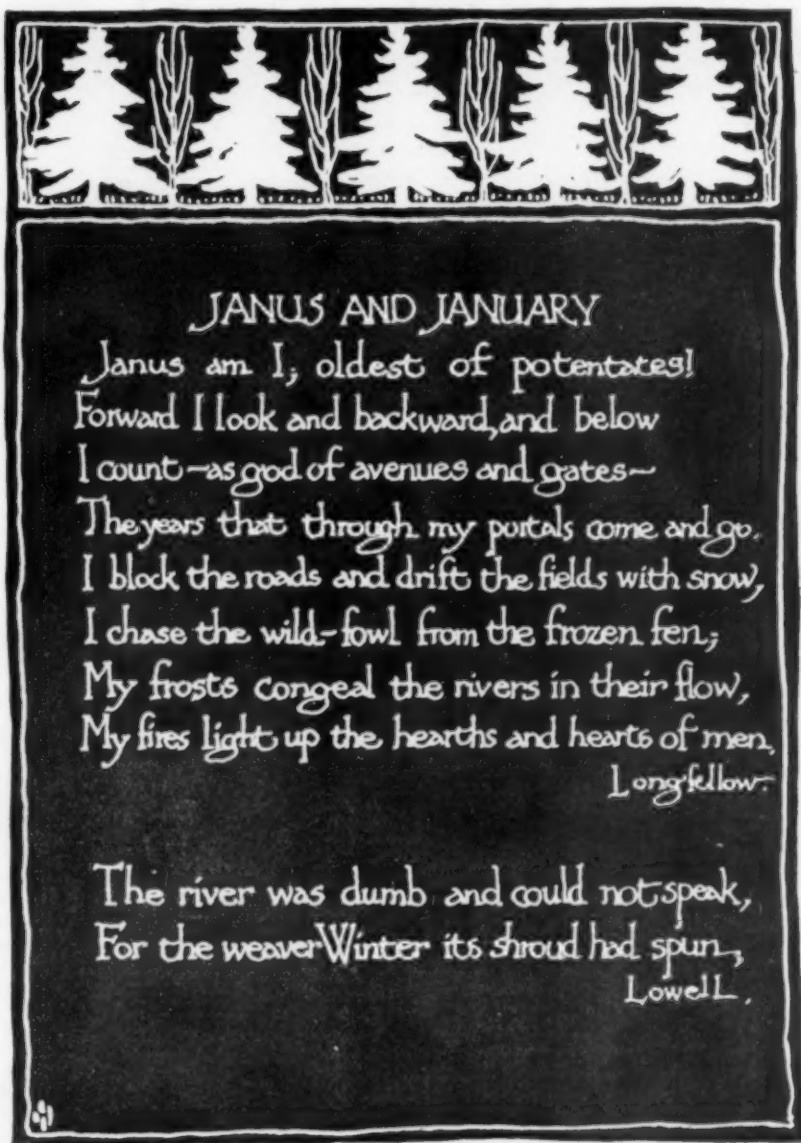 JANUS AND JANUARY
Janus am I; oldest of potentates!
Forward I look and backward, and below
I count—as god of avenues and gates—
The years that through my portals come and go.
I block the roads and drift the fields with snow,
I chase the wild-fowl from the frozen fen;
My frosts congeal the rivers in their flow,
My fires light up the hearths and hearts of men.
Longfellow.
The river was dumb and could not speak,
For the weaver Winter its shroud had spun;
Lowell.